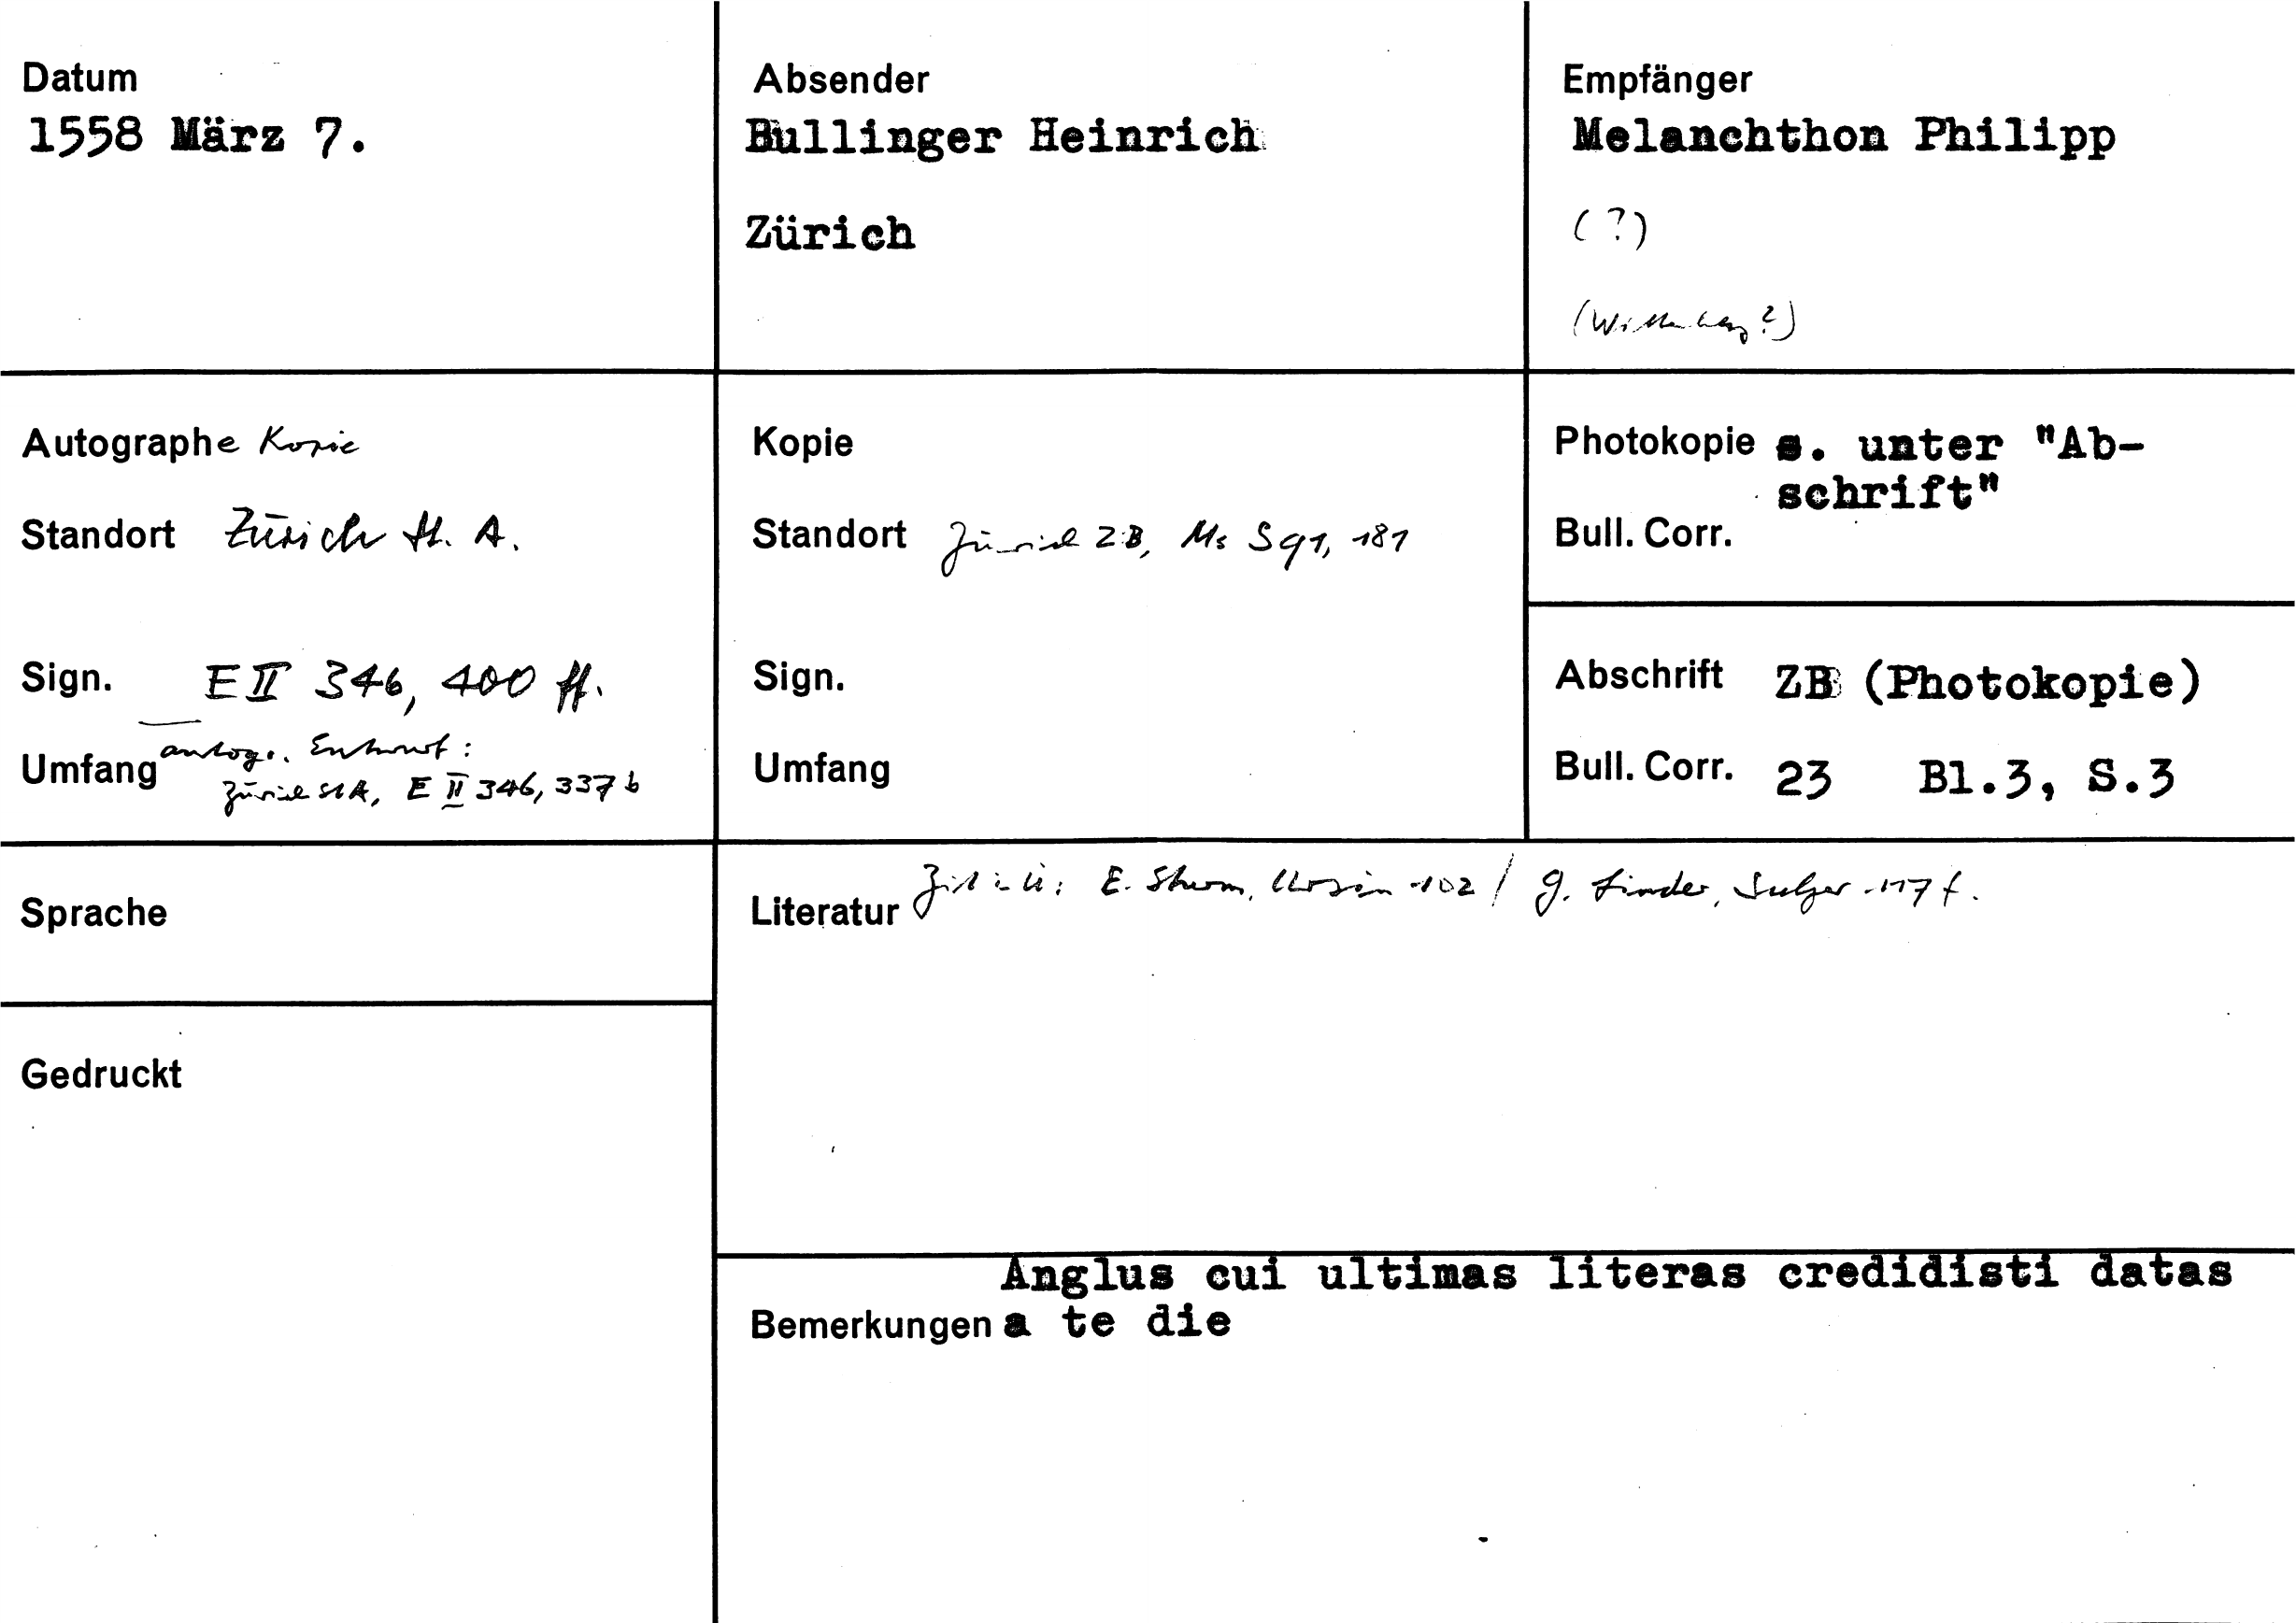 Datum
1558 März 7.
Absender
Bullinger Heinrich
Zürich
Empfänger
Melanchthon Philipp
(?)
(Wittenberg?)
Autographe Kopie
Standort Zürich St. A.
Sign. E II 346, 400 ff.
Umfang autogr. Entwurf:
Zürich StA, E II 346, 337 b
Kopie
Standort Zürich ZB, Ms S 91, 181
Sign.
Umfang
Photokopie s. unter "Ab-
schrift"
Bull. Corr.
Abschrift ZB (Photokopie)
Bull. Corr. 23 Bl.3, S.3
Sprache
Literatur E. Sturm, Ursin 102 / G. Linder, Sulzer 117 f.
Gedruckt
Anglus cui ultimas literas credidisti datas
Bemerkungen a te die